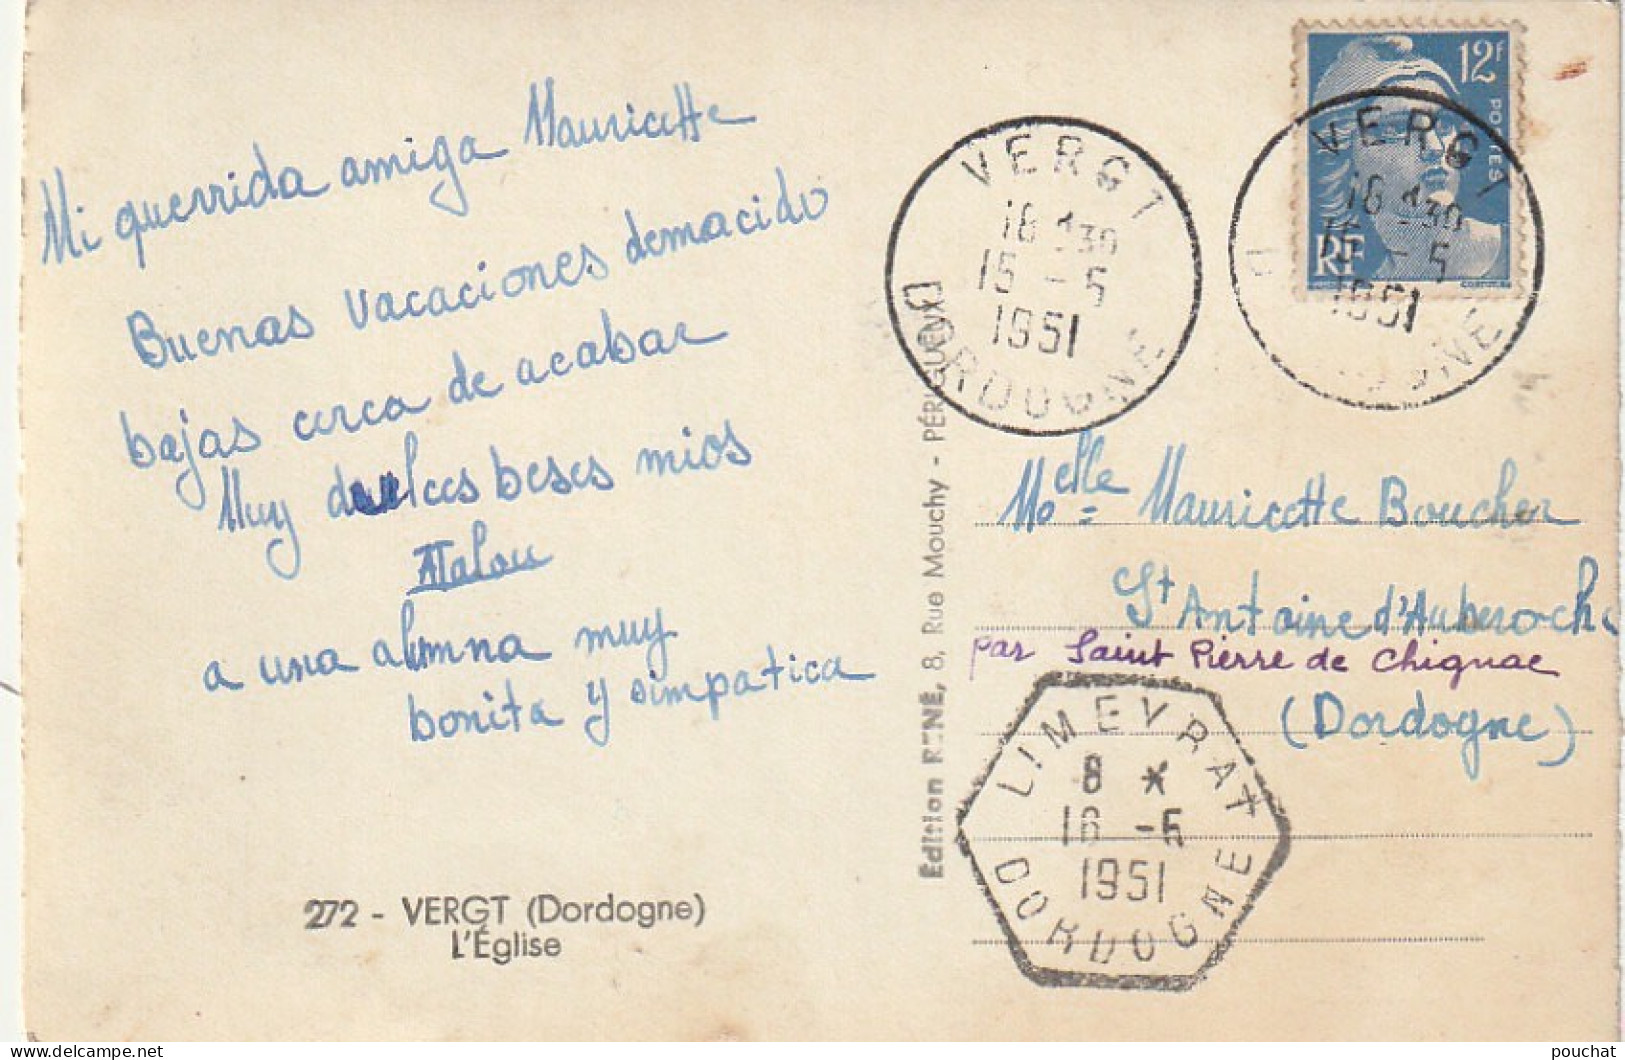 Mi querrida amiga Mauricette
Buenas vacaciones demacido
bajas cerca de acabar
Muy duelces beses mios
Malou
a una alumna muy
bonita y simpatica
272 - VERGT (Dordogne)
L'Église
Édition RENÉ, 8, Rue Mouchy - PÉRIGUEUX
VERGT
18 H30
15 - 5
1951
DORDOGNE
12F
POSTES
RF
VERGT
18 H30
15 - 5
1951
DORDOGNE
Melle Mauricette Boucher
St Antoine d'Auberoche
par Saint Pierre de Chignac
(Dordogne)
LIMEYRAT
8 *
16 - 5
1951
DORDOGNE
pouchat